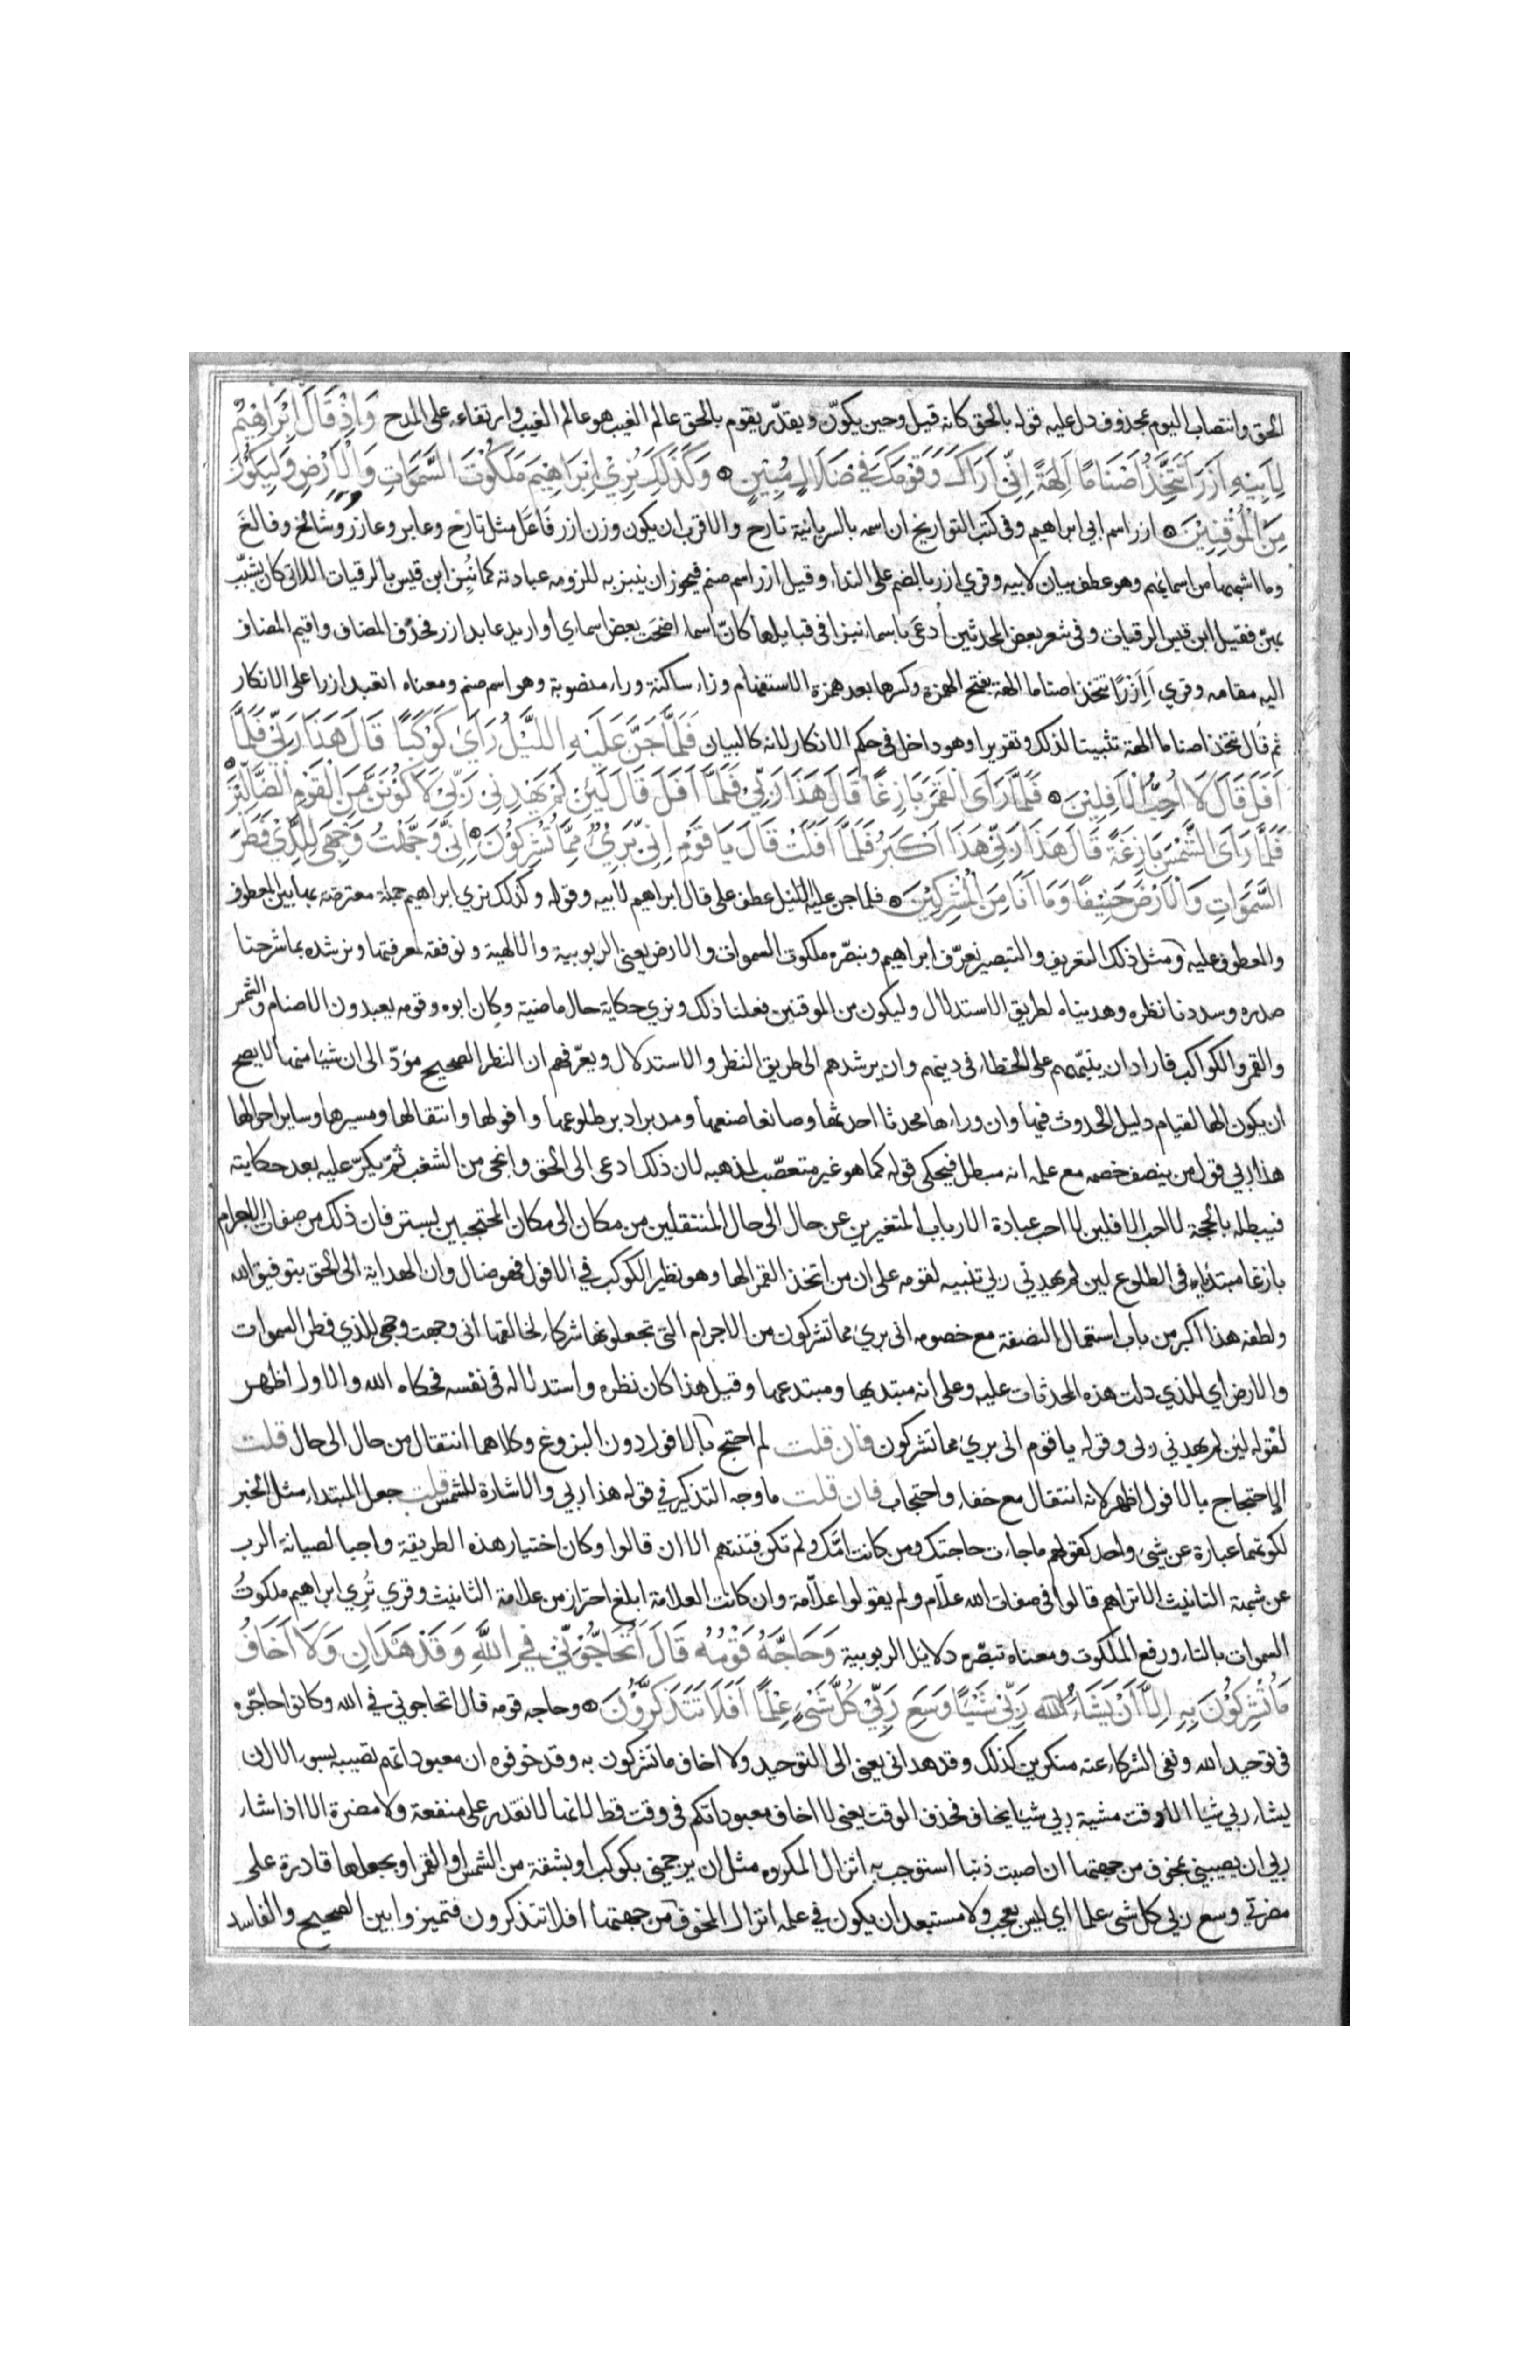 الحق وانتصاب اليوم بمحذوف دل عليه قوله بالحق كانه قيل وحين يكوّن ويقدّر يقوم بالحق عالم الغيب هو عالم الغيب وارتفاعه على المدح وَاِذْ قَالَ اِبْرَاهِيْمُ
لِاَبِيْهِ اٰزَرَ اَتَتَّخِذُ اَصْنَامًا اٰلِهَةً اِنِّيْ اَرَاكَ وَقَوْمَكَ فِيْ ضَلَالٍ مُبِيْنٍ وَكَذٰلِكَ نُرِيْ اِبْرَاهِيْمَ مَلَكُوْتَ السَّمٰوَاتِ وَالْاَرْضِ وَلِيَكُوْنَ
مِنَ الْمُوْقِنِيْنَ ازر اسم ابي ابراهيم وفي كتب التواريخ ان اسمه بالسريانية تارح والاقرب ان يكون وزن ازر فاعَل مثل تارَح وعابر وعازر وشالخ وفالغ
وما اشبهها من اسمائهم وهو عطف بيان لابيه وقري ازر بالضم على النداء وقيل ازر اسم صنم فيجوز ان ينبز به للزومه عبادته كما نُبِز ابن قيس بالرقيات اللاتي كان يشبّب
بهنّ فقيل ابن قيس الرقيات وفي شعر بعض المحدثين اُدعَى باسماء نبزا في قبايلها كانّ اسماء اضحَت بعض اسماي او اريد عابد ازر فحذف المضاف واقيم المضاف
اليه مقامه وقري اَاَزرًا تتخذ اصناما الهة بفتح الهمزة وكسرها بعد همزة الاستفهام وزاء ساكنة وراء منصوبة وهو اسم صنم ومعناه اتعبد ازرا على الانكار
ثم قال تتخذ اصناما الهة تثبيتا لذلك وتقريرا وهو داخل في حكم الانكار لانه كالبيان فَلَمَّا جَنَّ عَلَيْهِ اللَّيْلُ رَاٰى كَوْكَبًا قَالَ هٰذَا رَبِّيْ فَلَمَّا
اَفَلَ قَالَ لَا اُحِبُّ الْاٰفِلِيْنَ فَلَمَّا رَاَى الْقَمَرَ بَازِغًا قَالَ هٰذَا رَبِّيْ فَلَمَّا اَفَلَ قَالَ لَئِنْ لَمْ يَهْدِنِيْ رَبِّيْ لَاَكُوْنَنَّ مِنَ الْقَوْمِ الضَّالِّيْنَ
فَلَمَّا رَاَى الشَّمْسَ بَازِغَةً قَالَ هٰذَا رَبِّيْ هٰذَا اَكْبَرُ فَلَمَّا اَفَلَتْ قَالَ يَا قَوْمِ اِنِّيْ بَرِيْءٌ مِمَّا تُشْرِكُوْنَ اِنِّيْ وَجَّهْتُ وَجْهِيَ لِلَّذِيْ فَطَرَ
السَّمٰوَاتِ وَالْاَرْضَ حَنِيْفًا وَمَا اَنَا مِنَ الْمُشْرِكِيْنَ فلما جن عليه الليل عطف على قال ابراهيم لابيه وقوله وكذلك نري ابراهيم جملة معترضة بها بين المعطوف
والمعطوف عليه ومثل ذلك التعريف والتبصير نعرّف ابراهيم ونبصّره ملكوت السموات والارض يعني الربوبية والالهية ونوفقه لمعرفتها ونرشده بما شرحنا
صدره وسددنا نظره وهديناه لطريق الاستدلال وليكون من الموقنين فعلنا ذلك ونري حكاية حال ماضية وكان ابوه وقومه يعبدون الاصنام والشمس
والقمر والكواكب فاراد ان ينبّههم على الخطاء في دينهم وان يرشدهم الى طريق النظر والاستدلال ويعرّفهم ان النظر الصحيح مؤدّ الى ان شيئا منها لا يصح
ان يكون الها لقيام دليل الحدوث فيها وان وراءها محدثا احدثها وصانعا صنعها ومدبرا دبر طلوعها وافولها وانتقالها ومسيرها وساير احوالها
هذا ربي قول من ينصف خصمه مع علمه انه مبطل فيحكي قوله كما هو غير متعصّب لمذهبه لان ذلك ادعى الى الحق وانجى من الشغب ثمّ يكرّ عليه بعد حكايته
فيبطله بالحجة لا احب الافلين لا احب عبادة الارباب المتغيرين عن حال الى حال المنتقلين من مكان الى مكان المحتجبين بستر فان ذلك من صفات الاجرام
بازغا مبتدئا في الطلوع لين لم يهدني ربي تنبيه لقومه على ان من اتخذ القمر الها وهو نظير الكوكب في الافول فهو ضال وان الهداية الى الحق بتوفيق الله
ولطفه هذا اكبر من باب استعمال النصفة مع خصومه اني بريء مما تشركون من الاجرام التي تجعلونها شركاء لخالقها اني وجهت وجهي للذي فطر السموات
والارض اي للذي دلت هذه المحدثات عليه وعلى انه مبتديها ومبتدعها وقيل هذا كان نظره واستدلاله في نفسه فحكاه الله والاول اظهر
لقوله لئن لم يهدني ربي وقوله يا قوم اني بريء مما تشركون فان قلت لم احتج بالافول دون البزوغ وكلاهما انتقال من حال الى حال قلت
الاحتجاج بالافول اظهر لانه انتقال مع خفاء واحتجاب فان قلت ما وجه التذكير في قوله هذا ربي والاشارة للشمس قلت جعل المبتداء مثل الخبر
لكونهما عبارة عن شيئ واحد كقولهم ما جاءت حاجتك ومن كانت امّك ولم تكن فتنتهم الا ان قالوا وكان اختيار هذه الطريقة واجبا لصيانة الرب
عن شبهة التانيث الا تراهم قالوا في صفات الله علّام ولم يقولوا علّامة وان كانت العلامة ابلغ احترازا من علامة التانيث وقري تُرِي ابراهيم ملكوتُ
السموات بالتاء ورفع الملكوت ومعناه تبصّره دلايل الربوبية وَحَاجَّهُ قَوْمُهُ قَالَ اَتُحَاجُّوْنِّيْ فِي اللّٰهِ وَقَدْ هَدَانِ وَلَا اَخَافُ
مَا تُشْرِكُوْنَ بِهِ اِلَّا اَنْ يَشَاءَ رَبِّيْ شَيْئًا وَسِعَ رَبِّيْ كُلَّ شَيْءٍ عِلْمًا اَفَلَا تَتَذَكَّرُوْنَ وحاجه قومه قال اتحاجوني في الله وكانوا حاجّوه
في توحيد الله ونفي الشركاء عنه منكرين لذلك وقد هداني يعني الى التوحيد ولا اخاف ما تشركون به وقد خوفوه ان معبوداتهم تصيبه بسوء الا ان
يشاء ربي شيا الا وقت مشية ربي شيا يخاف فحذف الوقت يعني لا اخاف معبوداتكم في وقت قط لانها لا تقدر على منفعة ولا مضرة الا اذا شاء
ربي ان يصيبني بمخوف من جهتها ان اصبت ذنبا استوجب به انزال المكروه مثل ان يرجمني بكوكب او بشقة من الشمس او القمر او يجعلها قادرة على
مضرتي وسع ربي كل شيء علما اي ليس بعجب ولا مستبعد ان يكون في علمه انزال المخوف من جهتها افلا تتذكرون فتميزوا بين الصحيح والفاسد